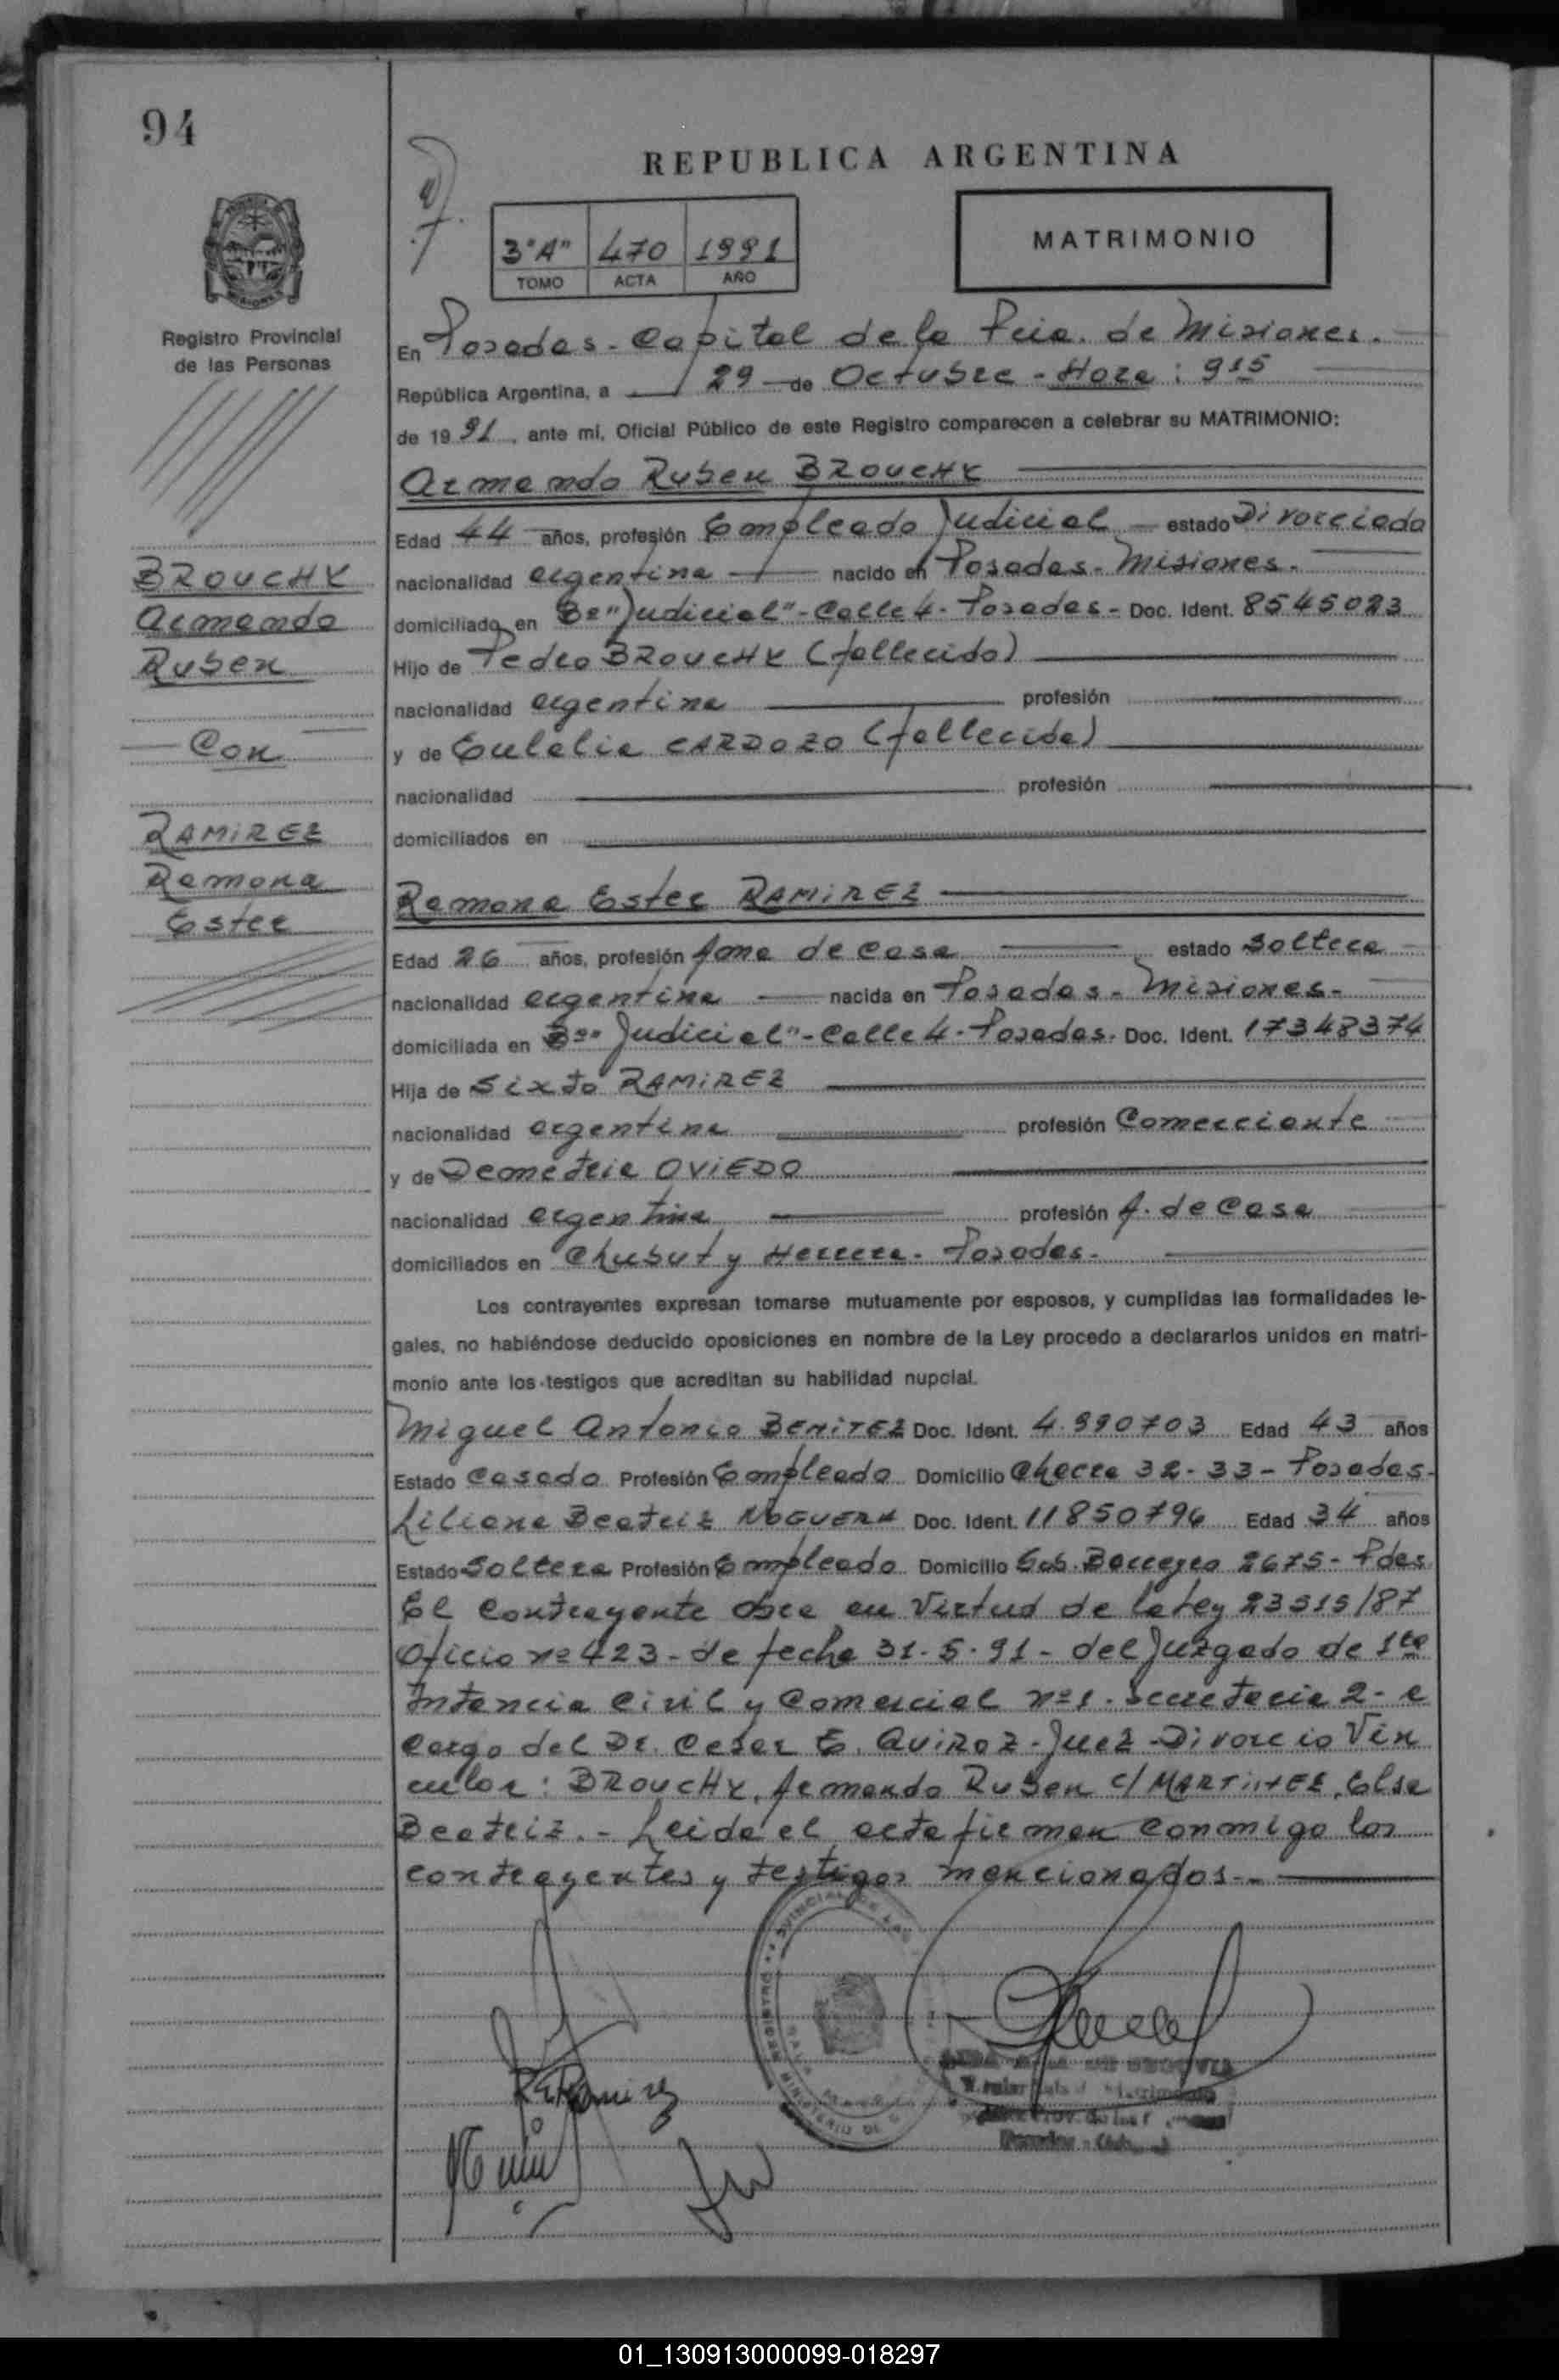 94
REPUBLICA ARGENTINA
3"A" 470 1991
TOMO ACTA AÑO
MATRIMONIO
Registro Provincial
de las Personas
En Posadas - Capital de la Pcia. de Misiones.
República Argentina, a 29 de Octubre - Hora: 9 15
de 19 91, ante mi, Oficial Público de este Registro comparecen a celebrar su MATRIMONIO:
Armando Ruben BROUCHY
Edad 44 años, profesión Empleado Judicial estado Divorciado
BROUCHY
nacionalidad argentina nacido en Posadas - Misiones.
Armando
domiciliado en Bº "Judicial" - Calle 4 - Posadas - Doc. Ident. 8545023
Ruben
Hijo de Pedro BROUCHY (fallecido)
nacionalidad argentina profesión
Con
y de Eulalia CARDOZO (fallecida)
nacionalidad profesión
RAMIREZ
domiciliados en
Ramona
Ramona Ester RAMIREZ
Ester
Edad 26 años, profesión Ama de Casa estado Soltera
nacionalidad argentina nacida en Posadas - Misiones -
domiciliada en Bº "Judicial" - Calle 4 - Posadas. Doc. Ident. 17348374
Hija de Sixto RAMIREZ
nacionalidad argentina profesión Comerciante
y de Demetria OVIEDO
nacionalidad argentina profesión A. de Casa
domiciliados en Chubut y Herrera - Posadas -
Los contrayentes expresan tomarse mutuamente por esposos, y cumplidas las formalidades le-
gales, no habiéndose deducido oposiciones en nombre de la Ley procedo a declararlos unidos en matri-
monio ante los testigos que acreditan su habilidad nupcial.
Miguel Antonio BENITEZ Doc. Ident. 4.990703 Edad 43 años
Estado Casado Profesión Empleado Domicilio Chacra 32-33 - Posadas -
Liliana Beatriz NOGUERA Doc. Ident. 11850796 Edad 34 años
Estado Soltera Profesión Empleada Domicilio Gob. Barreyro 2675 - Pdas
El Contrayente obra en Virtud de la Ley 23515/87
Oficio nº 423 - de fecha 31-5-91 - del Juzgado de 1ra
Intancia Civil y Comercial nº 1. Secretaria 2 - a
Cargo del Dr. Cesar E. QUIROZ - Juez - Divorcio Vin
cular: BROUCHY, Armando Ruben c/ MARTINEZ, Elsa
Beatriz. - Leida el acta firman conmigo los
contrayentes y testigos mencionados. -
R E Ramirez
01_130913000099-018297